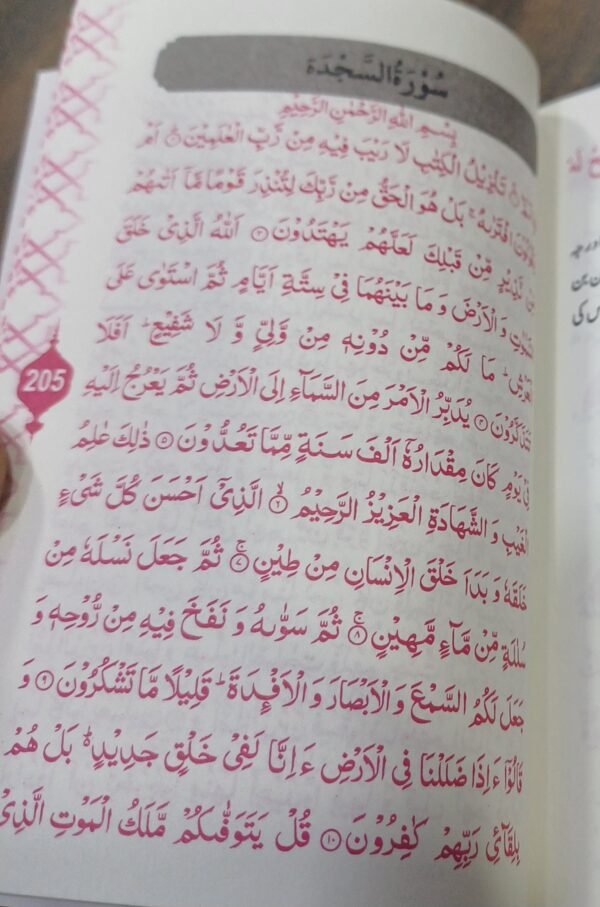 سُوْرَةُ السَّجْدَة
بِسْمِ اللّٰهِ الرَّحْمٰنِ الرَّحِيْمِ
تَنْزِيْلُ الْكِتٰبِ لَا رَيْبَ فِيْهِ مِنْ رَّبِّ الْعٰلَمِيْنَ ۟ اَمْ
افْتَرٰىهُ ۚ بَلْ هُوَ الْحَقُّ مِنْ رَّبِّكَ لِتُنْذِرَ قَوْمًا مَّاۤ اَتٰىهُمْ
مِّنْ نَّذِيْرٍ مِّنْ قَبْلِكَ لَعَلَّهُمْ يَهْتَدُوْنَ ۟ اَللّٰهُ الَّذِيْ خَلَقَ
وَالْاَرْضَ وَ مَا بَيْنَهُمَا فِيْ سِتَّةِ اَيَّامٍ ثُمَّ اسْتَوٰى عَلَى
الْعَرْشِ ؕ مَا لَكُمْ مِّنْ دُوْنِهٖ مِنْ وَّلِيٍّ وَّ لَا شَفِيْعٍ ؕ اَفَلَا
تَتَذَكَّرُوْنَ ۟ يُدَبِّرُ الْاَمْرَ مِنَ السَّمَآءِ اِلَى الْاَرْضِ ثُمَّ يَعْرُجُ اِلَيْهِ
فِيْ يَوْمٍ كَانَ مِقْدَارُهٗۤ اَلْفَ سَنَةٍ مِّمَّا تَعُدُّوْنَ ۵ ذٰلِكَ عٰلِمُ
الْغَيْبِ وَ الشَّهَادَةِ الْعَزِيْزُ الرَّحِيْمُ ۶ۙ الَّذِيْۤ اَحْسَنَ كُلَّ شَيْءٍ
خَلَقَهٗ وَ بَدَاَ خَلْقَ الْاِنْسَانِ مِنْ طِيْنٍ ۷ۚ ثُمَّ جَعَلَ نَسْلَهٗ مِنْ
سُلٰلَةٍ مِّنْ مَّآءٍ مَّهِيْنٍ ۸ۚ ثُمَّ سَوّٰىهُ وَ نَفَخَ فِيْهِ مِنْ رُّوْحِهٖ وَ
جَعَلَ لَكُمُ السَّمْعَ وَ الْاَبْصَارَ وَ الْاَفْـِٕدَةَ ؕ قَلِيْلًا مَّا تَشْكُرُوْنَ ۹ وَ
قَالُوْۤا ءَاِذَا ضَلَلْنَا فِي الْاَرْضِ ءَاِنَّا لَفِيْ خَلْقٍ جَدِيْدٍ ۬ؕ بَلْ هُمْ
بِلِقَآئِ رَبِّهِمْ كٰفِرُوْنَ ۱۰ قُلْ يَتَوَفّٰىكُمْ مَّلَكُ الْمَوْتِ الَّذِيْ
205